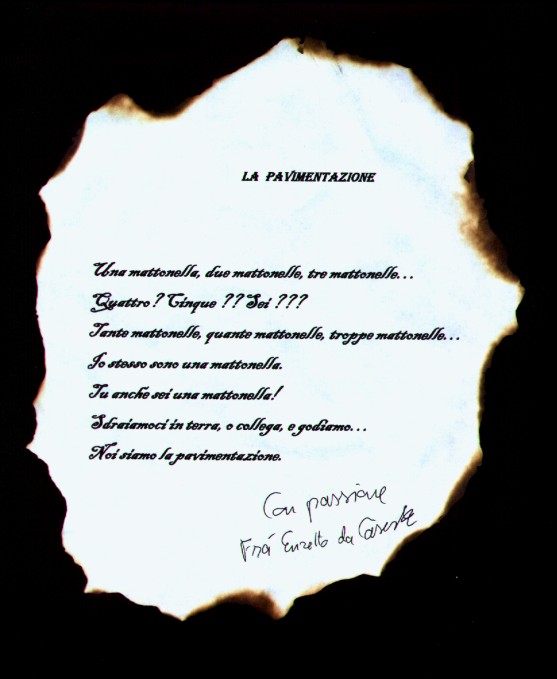 LA PAVIMENTAZIONE
Una mattonella, due mattonelle, tre mattonelle...
Quattro? Cinque ?? Sei ???
Tante mattonelle, quante mattonelle, troppe mattonelle...
Io stesso sono una mattonella.
Tu anche sei una mattonella!
Sdraiamoci in terra, o collega, e godiamo...
Noi siamo la pavimentazione.
Con passione
Frá Enzetto da Caserta